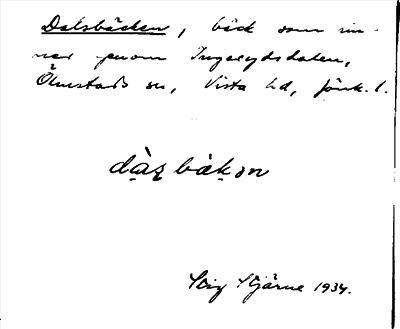 Dalsbäcken, bäck som rin-
ner genom Ingarydsdalen,
Ölmstads sn, Vista hd, Jönk. l.
dàꞎbäkən
Stig Stjärne 1934.